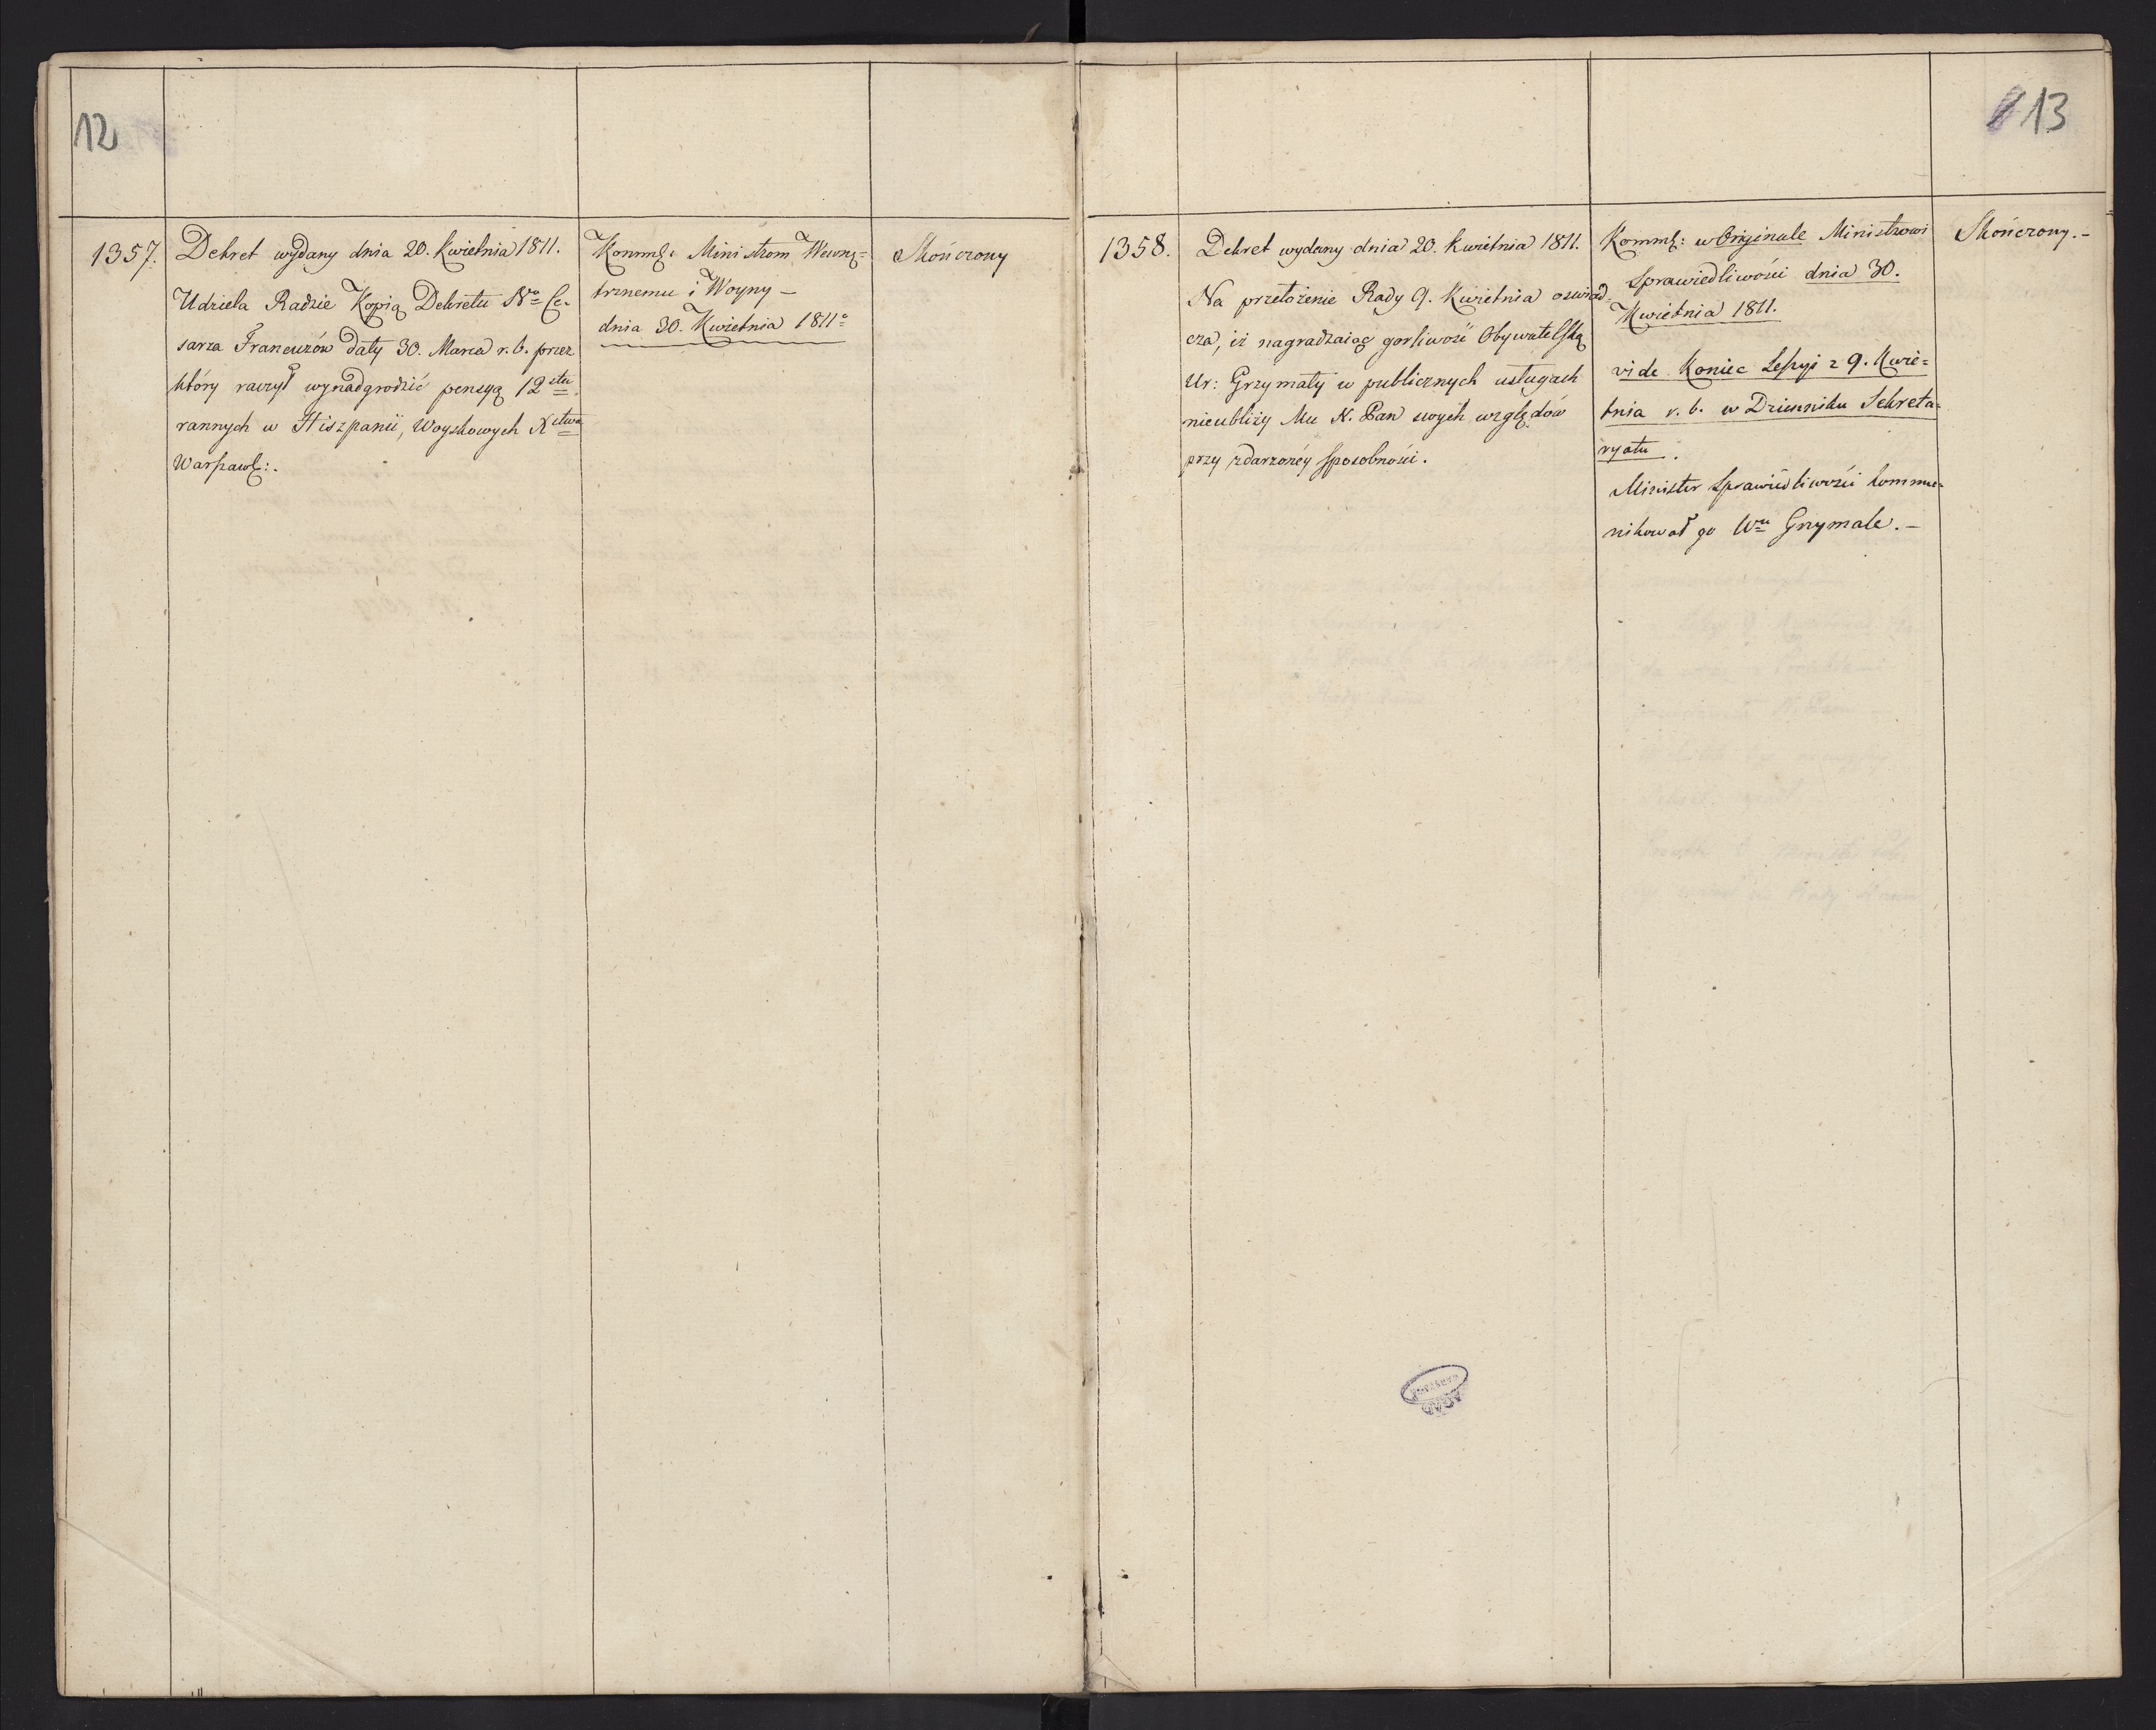 12
1357.
Dekret wydany dnia 20. Kwietnia 1811.
Udziela Radzie Kopią Dekretu Ngo Ce-
sarza Francuzów daty 30. Marca r. b. przez
który raczył wynadgrodzić pensyą 12stu
rannych w Hiszpanii, Woyskowych Xstwa
Warszaw:.
Kommk: Ministrom Wewnę=
trznemu i Woyny –
dnia 30. Kwietnia 1811o
Skończony
13
1358.
Dekret wydany dnia 20. Kwietnia 1811.
Na przełożenie Rady 9. Kwietnia oświad-
cza, iż nagradzaiąc gorliwość Obywatelską
Ur: Grzymały w publicznych usługach
nieubliży Mu N. Pan swych względów
przy zdarzoney sposobności.
Kommk: w Originale Ministrowi
Sprawiedliwości dnia 30.
Kwietnia 1811.
vide Koniec Sessyi z 9. Kwie=
tnia r. b. w Dzienniku Sekreta=
ryatu.
Minister Sprawiedliwości kommu=
nikował go Wmu Grzymale. –
Skończony. –